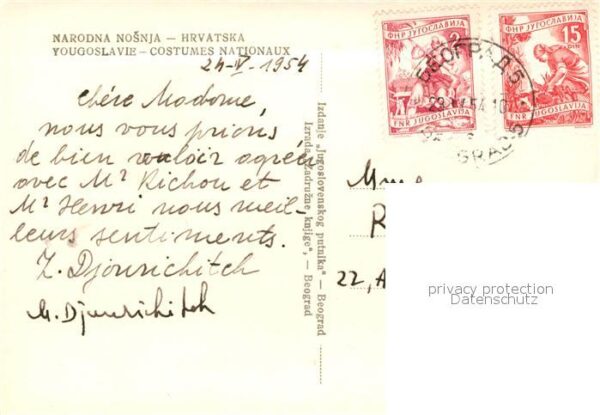 NARODNA NOŠNJA — HRVATSKA
YOUGOSLAVIE — COSTUMES NATIONAUX
24-V-1954
chère Madame,
nous vous prions
de bien vouloir agréer
avec Mr Richou et
Mr Henri nous meil-
leurs sentiments.
Z. Djourichitch
M. Djourichitch
Izdanje „Jugoslovenskog putnika" — Beograd
Izrada „Zadružne knjige", — Beograd
ФНР ЈУГОСЛАВИЈА
2
FNR JUGOSLAVIJA
ФНР ЈУГОСЛАВИЈА
15
DIN
FNR JUGOSLAVIJA
БЕОГРАД 5
Mme
R
22, A
privacy protection
Datenschutz